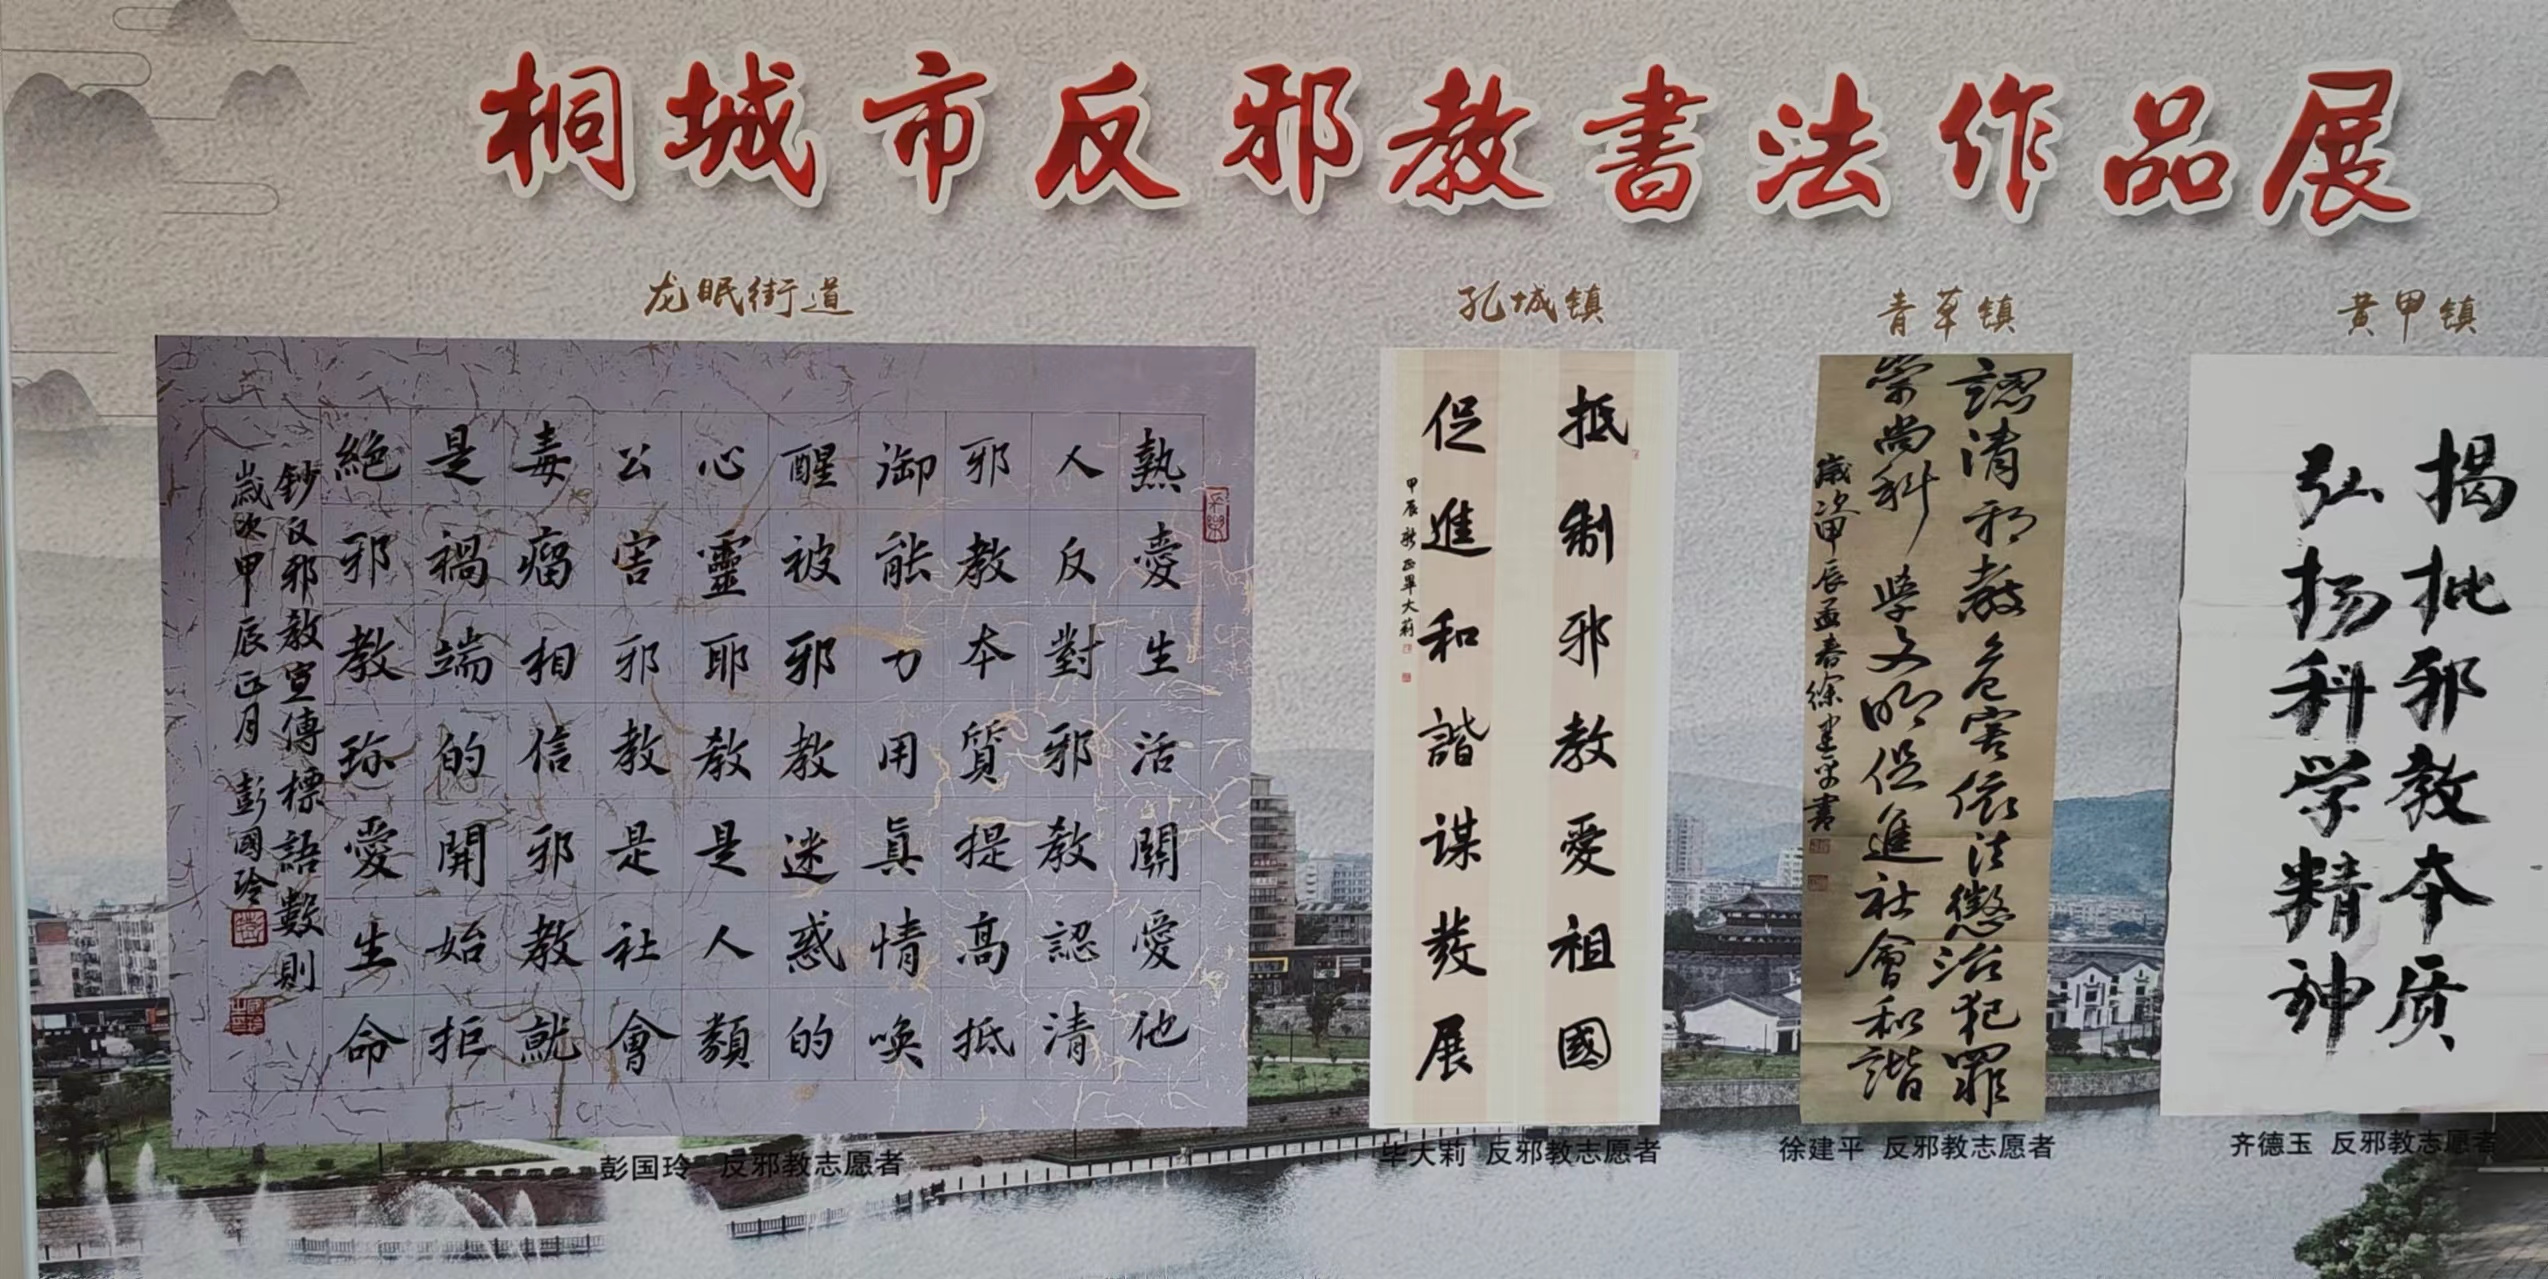 桐城市反邪教书法作品展
龙眠街道
熱愛生活關愛他
人反對邪教認清
邪教本質提高抵
御能力用真情喚
醒被邪教迷惑的
心靈耶教是人類
公害邪教是社會
毒瘤相信邪教就
是禍端的開始拒
絕邪教珎愛生命
鈔反邪教宣傳標語數則
歲次甲辰正月 彭國玲
彭国玲 反邪教志愿者
孔城镇
抵制邪教愛祖國
促進和諧謀發展
甲辰新正畢大莉
毕大莉 反邪教志愿者
青草镇
認清邪教危害依法懲治犯罪
崇尚科學文明促進社會和諧
歲次甲辰孟春徐建平書
徐建平 反邪教志愿者
黄甲镇
揭批邪教本质
弘扬科学精神
齐德玉 反邪教志愿者